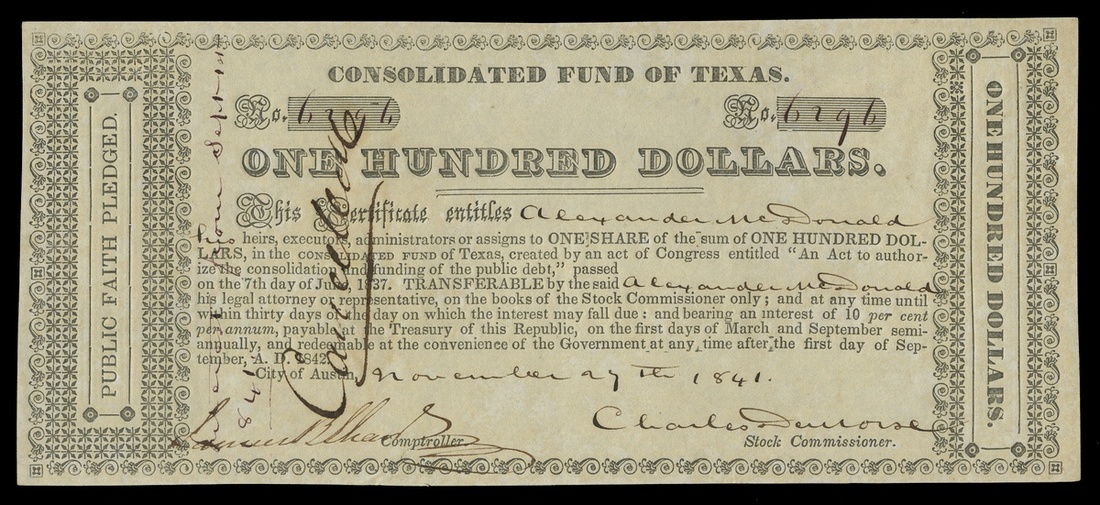 CONSOLIDATED FUND OF TEXAS.
No. 6296
No. 6296
ONE HUNDRED DOLLARS.
This Certificate entitles Alexander McDonald
his heirs, executors, administrators or assigns to ONE SHARE of the sum of ONE HUNDRED DOL-
LARS, in the CONSOLIDATED FUND of Texas, created by an act of Congress entitled "An Act to author-
ize the consolidation and funding of the public debt," passed
on the 7th day of June, 1837. TRANSFERABLE by the said Alexander McDonald
his legal attorney or representative, on the books of the Stock Commissioner only; and at any time until
within thirty days of the day on which the interest may fall due: and bearing an interest of 10 per cent
per annum, payable at the Treasury of this Republic, on the first days of March and September semi-
annually, and redeemable at the convenience of the Government at any time after the first day of Sep-
tember, A. D. 1842.
City of Austin, November 27th 1841.
Comptroller
Charles DeMorse
Stock Commissioner.
PUBLIC FAITH PLEDGED.
ONE HUNDRED DOLLARS.
Cancelled
from Sept
1841